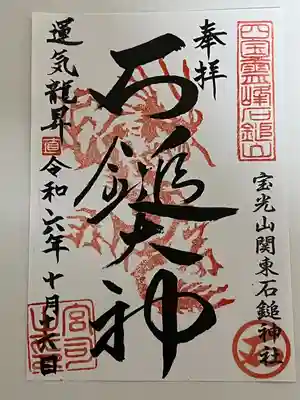 四国霊峰石鎚山
奉拝
宝光山関東石鎚神社
石鎚大神
運気龍昇
令和六年十月十六日